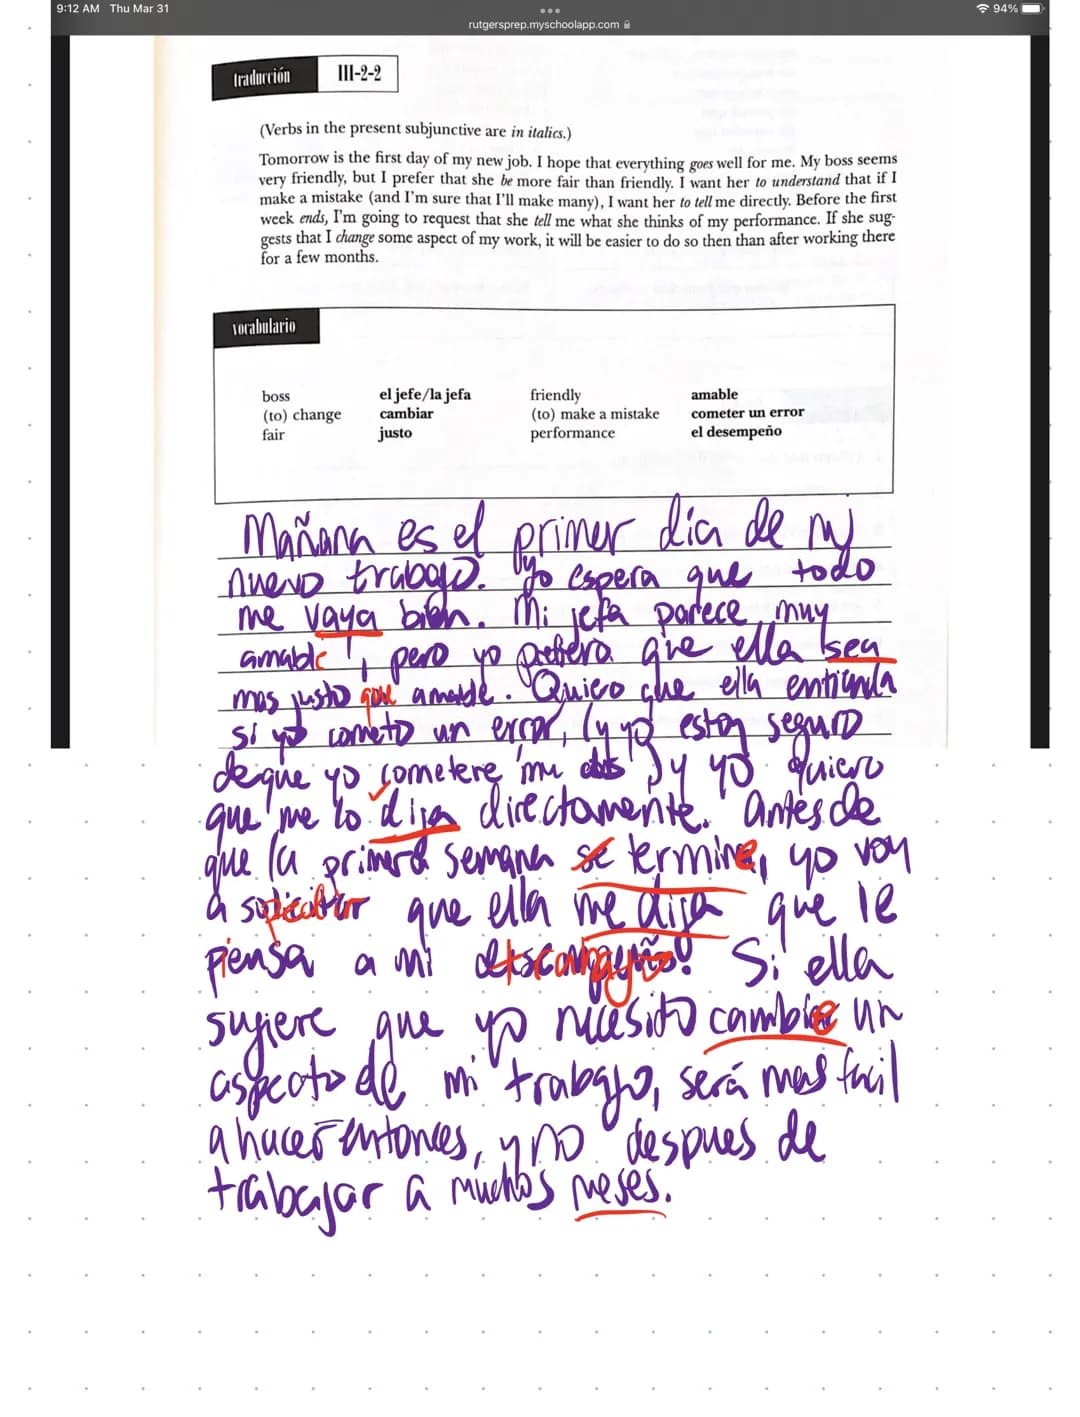 9:12 AM Thu Mar 31
rutgersprep.myschoolapp.com
94%
traducción III-2-2
(Verbs in the present subjunctive are in italics.)
Tomorrow is the first day of my new job. I hope that everything goes well for me. My boss seems
very friendly, but I prefer that she be more fair than friendly. I want her to understand that if I
make a mistake (and I'm sure that I'll make many), I want her to tell me directly. Before the first
week ends, I'm going to request that she tell me what she thinks of my performance. If she sug-
gests that I change some aspect of my work, it will be easier to do so then than after working there
for a few months.
vocabulario
boss el jefe/la jefa friendly amable
(to) change cambiar (to) make a mistake cometer un error
fair justo performance el desempeño
Mañana es el primer día de mi
nuevo trabajo. Yo espera que todo
me vaya bien. Mi jefa parece muy
amable, pero yo prefiero que ella sea
mas justo que amable. Quiero que ella entienda
si yo cometo un error, (y yo estoy seguro
de que yo cometere muchos) y yo quiero
que me lo diga directamente. Antes de
que la primera semana se termine, yo voy
a solicitar que ella me diga que le
piensa a mi
Si ella
sugiere que yo necesito cambie un
aspecto de mi trabajo, será mas facil
a hacer entonces, y no despues de
trabajar a muchos meses.